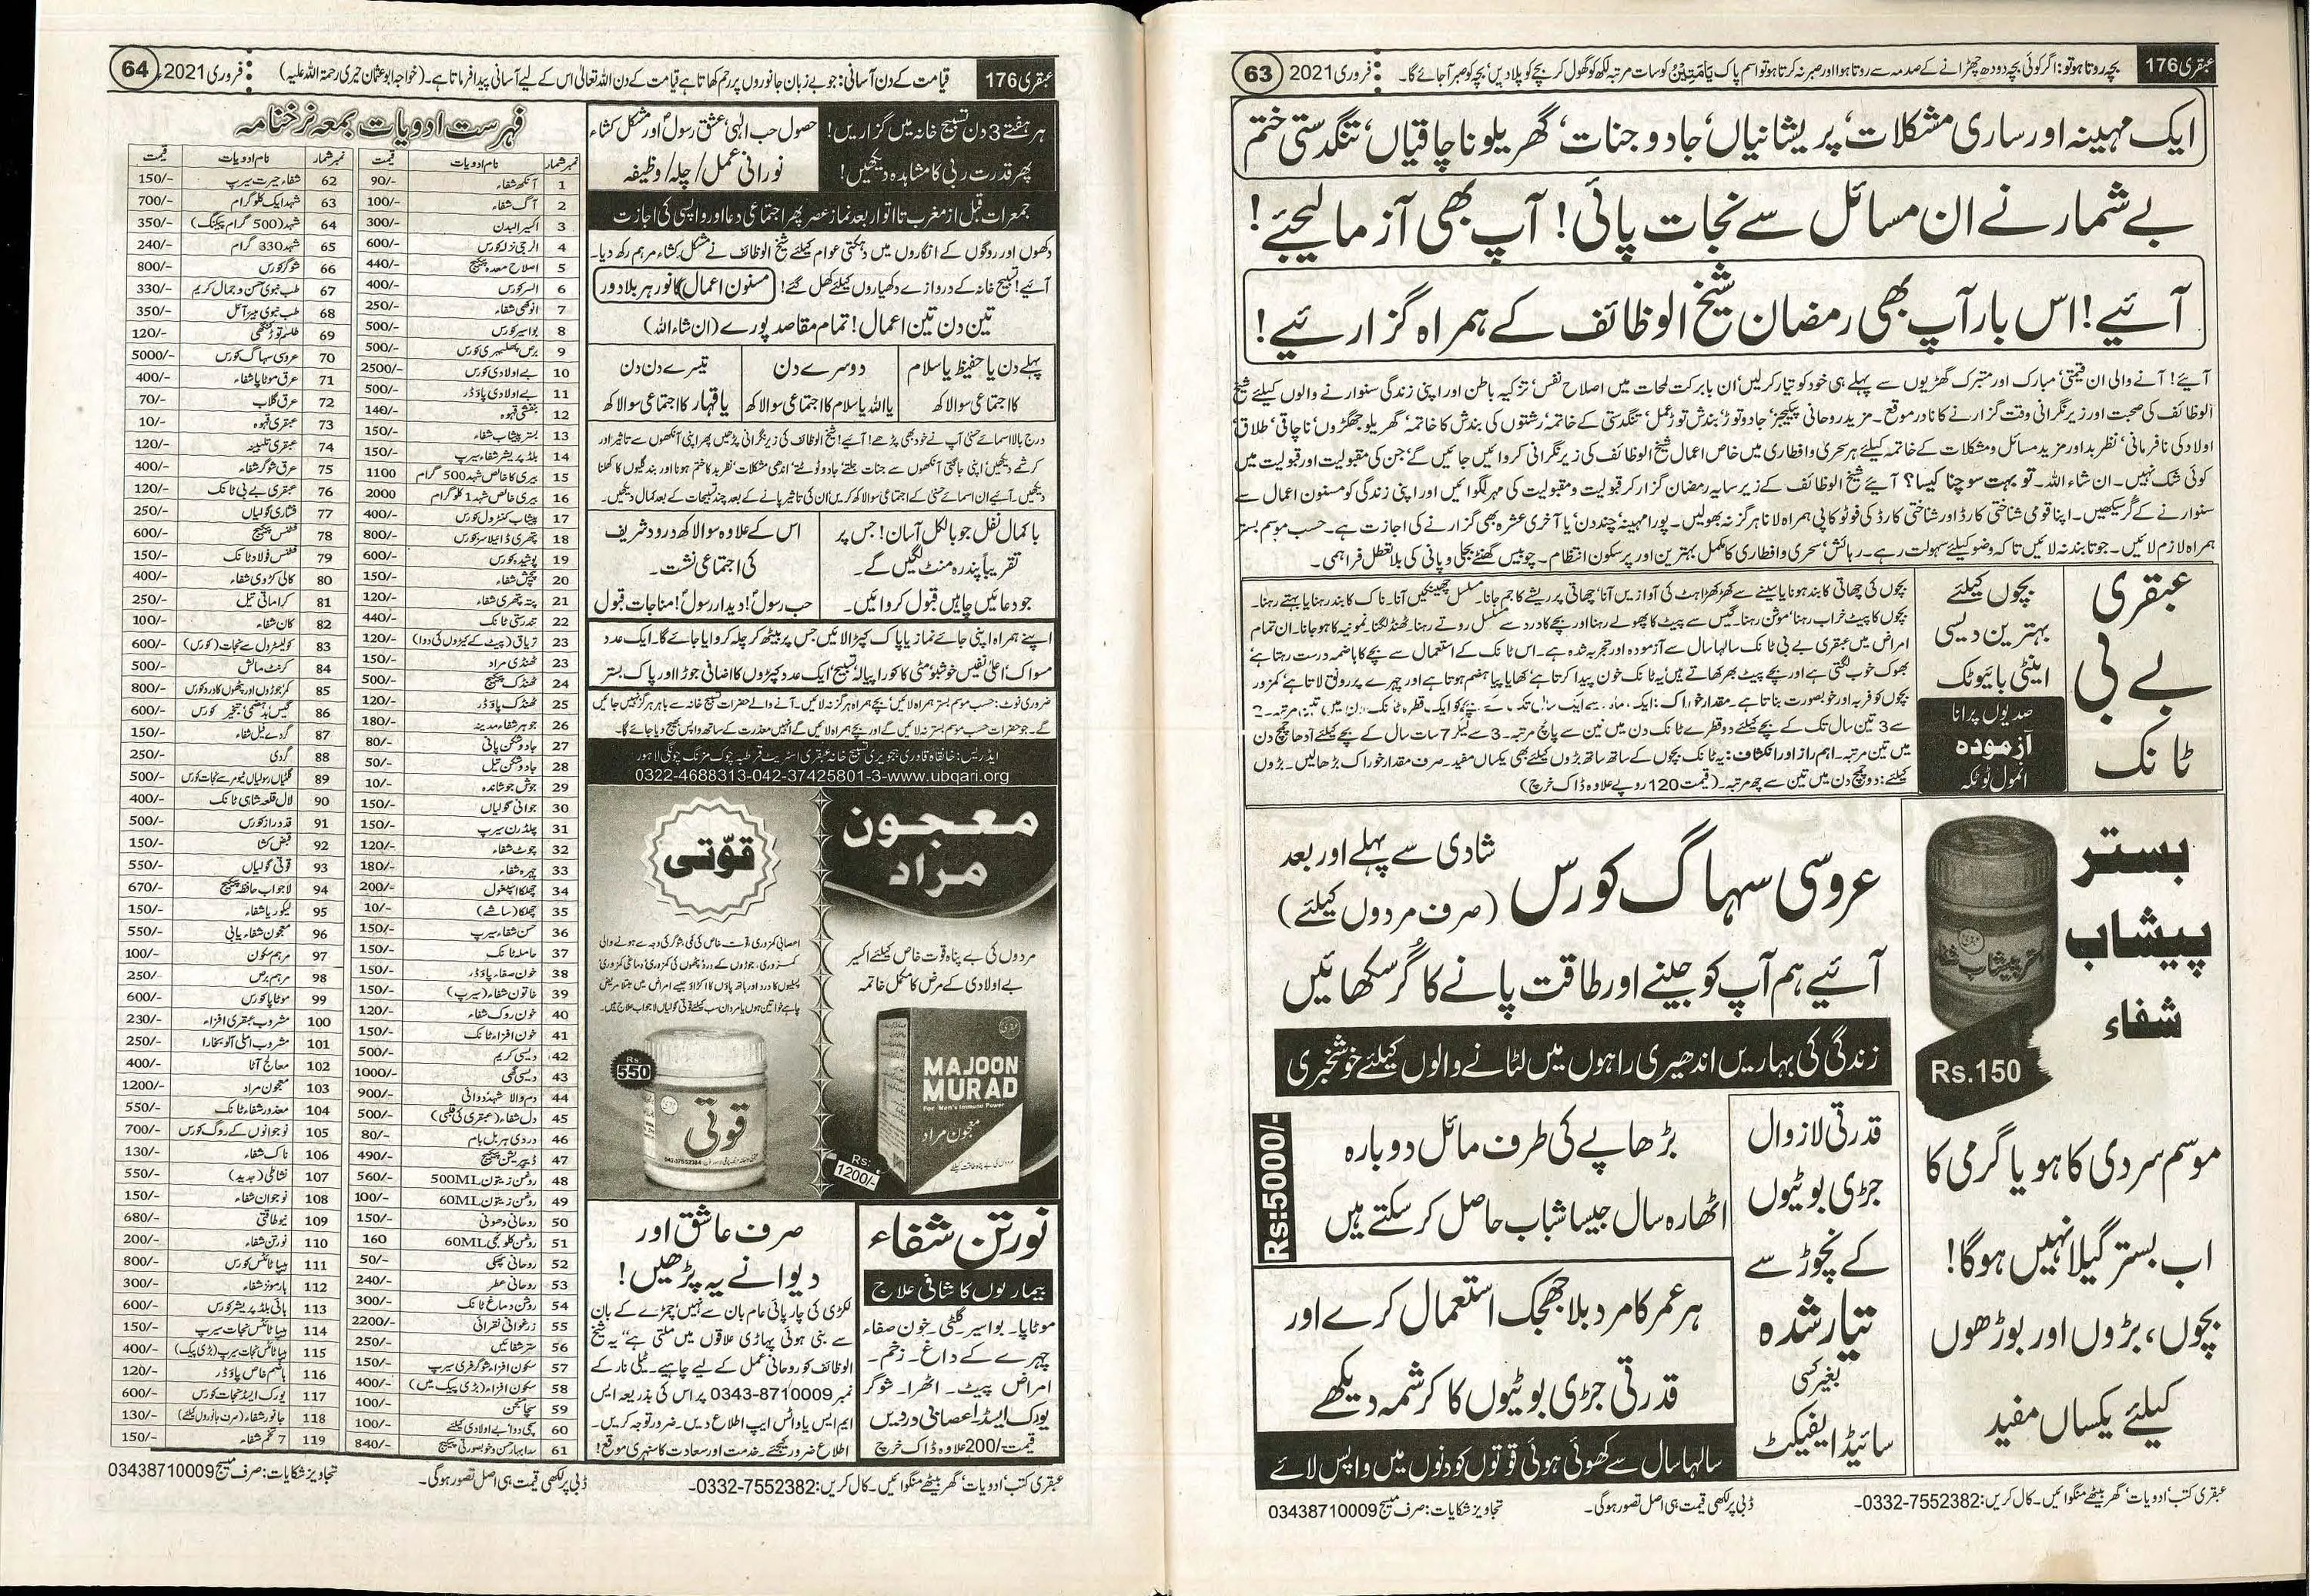 عبقری 176
بچہ روتا ہو تو: اگر کوئی بچہ دودھ چھڑانے کے صدمہ سے روتا ہو اور صبر نہ کرتا ہو تو اسم پاک یَامَتِیْنُ کو سات مرتبہ لکھ کو گھول کر بچے کو پلا دیں' بچہ کو صبر آجائے گا۔
فروری 2021ء
63
ایک مہینہ اور ساری مشکلات' پریشانیاں' جادو جنات' گھریلو ناچاقیاں' تنگدستی ختم
بے شمار نے ان مسائل سے نجات پائی! آپ بھی آزما لیجئے!
آئیے! اس بار آپ بھی رمضان شیخ الوظائف کے ہمراہ گزارئیے!
آئیے! آنے والی ان قیمتی' مبارک اور متبرک گھڑیوں سے پہلے ہی خود کو تیار کرلیں' ان بابرکت لمحات میں اصلاح نفس' تزکیہ باطن اور اپنی زندگی سنوارنے والوں کیلئے شیخ
الوظائف کی صحبت اور زیرنگرانی وقت گزارنے کا نادر موقع۔ مزید روحانی پیکیجز' جادو توڑ' بندش توڑ عمل' تنگدستی کے خاتمہ' رشتوں کی بندش کا خاتمہ' گھریلو جھگڑوں' ناچاقی' طلاق'
اولاد کی نافرمانی' نظربد اور مزید مسائل و مشکلات کے خاتمہ کیلئے ہر سحری و افطاری میں خاص اعمال شیخ الوظائف کی زیرنگرانی کروائیں جائیں گے' جن کی مقبولیت اور قبولیت میں
کوئی شک نہیں۔ ان شاء اللہ۔ تو بہت سوچنا کیسا؟ آئیے شیخ الوظائف کے زیر سایہ رمضان گزار کر قبولیت و مقبولیت کی مہر لگوائیں اور اپنی زندگی کو مسنون اعمال سے
سنوارنے کے گُر سیکھیں۔ اپنا قومی شناختی کارڈ اور شناختی کارڈ کی فوٹو کاپی ہمراہ لانا ہرگز نہ بھولیں۔ پورا مہینہ' چند دن' یا آخری عشرہ بھی گزارنے کی اجازت ہے۔ حسب موسم بستر
ہمراہ لازم لائیں۔ جوتا بند نہ لائیں تاکہ وضو کیلئے سہولت رہے۔ رہائش' سحری و افطاری کا مکمل بہترین اور پرسکون انتظام۔ چوبیس گھنٹے بجلی و پانی کی بلاتعطل فراہمی۔
عبقری
بے بی
ٹانک
بچوں کیلئے
بہترین دیسی
اینٹی بائیوٹک
صدیوں پرانا
آزمودہ
انمول ٹوٹکہ
بچوں کی چھاتی کا بند ہونا یا سینے سے کھڑکھڑاہٹ کی آوازیں آنا' چھاتی پر ریشے کا جم جانا۔ مسلسل چھینکیں آنا۔ ناک کا بند رہنا یا بہتے رہنا۔
بچوں کا پیٹ خراب رہنا' موشن رہنا۔ گیس سے پیٹ کا پھولے رہنا اور بچے کا درد سے مسلسل روتے رہنا۔ ٹھنڈ لگنا۔ نمونیہ کا ہوجانا۔ ان تمام
امراض میں عبقری بے بی ٹانک سالہا سال سے آزمودہ اور تجربہ شدہ ہے۔ اس ٹانک کے استعمال سے بچے کا ہاضمہ درست رہتا ہے'
بھوک خوب لگتی ہے اور بچے پیٹ بھر کھاتے ہیں' یہ ٹانک خون پیدا کرتا ہے' کھایا پیا ہضم ہوتا ہے اور چہرے پر رونق لاتا ہے' کمزور
بچوں کو فربہ اور خوبصورت بناتا ہے۔ مقدار خوراک: ایک ماہ سے ایک سال تک کے بچے کو ایک قطرہ ٹانک دن میں تین مرتبہ۔ 2
سے 3 تین سال تک کے بچے کیلئے دو قطرے ٹانک دن میں تین سے پانچ مرتبہ۔ 3 سے لیکر 7 سات سال کے بچے کیلئے آدھا چمچ دن
میں تین مرتبہ۔ اہم راز اور انکشاف: یہ ٹانک بچوں کے ساتھ ساتھ بڑوں کیلئے بھی یکساں مفید۔ صرف مقدار خوراک بڑھالیں۔ بڑوں
کیلئے: دو چمچ دن میں تین سے چھ مرتبہ۔ (قیمت 120 روپے علاوہ ڈاک خرچ)
بستر
پیشاب
شفاء
Rs.150
موسم سردی کا ہو یا گرمی کا
اب بستر گیلا نہیں ہوگا!
بچوں، بڑوں اور بوڑھوں
کیلئے یکساں مفید
شادی سے پہلے اور بعد
عروسی سہاگ کورس (صرف مردوں کیلئے)
آئیے ہم آپ کو جینے اور طاقت پانے کا گُر سکھائیں
زندگی کی بہاریں اندھیری راہوں میں لٹانے والوں کیلئے خوشخبری
قدرتی لازوال
جڑی بوٹیوں
کے نچوڑ سے
تیار شدہ
بغیر کسی
سائیڈ ایفیکٹ
بڑھاپے کی طرف مائل دوبارہ
اٹھارہ سال جیسا شباب حاصل کرسکتے ہیں
Rs:5000/-
ہر عمر کا مرد بلا جھجک استعمال کرے اور
قدرتی جڑی بوٹیوں کا کرشمہ دیکھے
سالہا سال سے کھوئی ہوئی قوتوں کو دنوں میں واپس لائے
عبقری کتب' ادویات' گھر بیٹھے منگوائیں۔ کال کریں: 0332-7552382۔
ڈبی پر لکھی قیمت ہی اصل تصور ہوگی۔
تجاویز شکایات: صرف میسج 03438710009
عبقری 176
قیامت کے دن آسانی: جو بے زبان جانوروں پر رحم کھاتا ہے قیامت کے دن اللہ تعالیٰ اس کے لیے آسانی پیدا فرماتا ہے۔ (خواجہ ابوعثمان حیری رحمۃ اللہ علیہ)
فروری 2021ء
64
ہر ہفتے 3 دن تسبیح خانہ میں گزاریں!
پھر قدرت ربی کا مشاہدہ دیکھیں!
حصول حب الٰہی' عشق رسولؐ اور مشکل کشاء
نورانی عمل/ چلہ/ وظیفہ
جمعرات قبل از مغرب تا اتوار بعد نماز عصر پھر اجتماعی دعا اور واپسی کی اجازت
دکھوں اور روگوں کے انگاروں میں دہکتی عوام کیلئے شیخ الوظائف نے مشکل کشاء مرہم رکھ دیا۔
آئیے! تسبیح خانہ کے دروازے دکھیاروں کیلئے کھل گئے! مسنون اعمال کا نور ہر بلا دور
تین دن تین اعمال! تمام مقاصد پورے (ان شاء اللہ)
پہلے دن یا حفیظ یا سلام
کا اجتماعی سوا لاکھ
دوسرے دن
یا اللہ یا سلام کا اجتماعی سوا لاکھ
تیسرے دن دن
یا قہار کا اجتماعی سوا لاکھ
درج بالا اسمائے حسنیٰ آپ نے خود بھی پڑھے! آئیے! شیخ الوظائف کی زیرنگرانی پڑھیں پھر اپنی آنکھوں سے تاثیر اور
کرشمے دیکھیں' اپنی جاگتی آنکھوں سے جنات جلتے' جادو ٹوٹتے' اندھی مشکلات' نظربد کا ختم ہونا اور بندگیوں کا کھلنا
دیکھیں۔ آئیے ان اسمائے حسنیٰ کے اجتماعی سوا لاکھ کریں' ان کی تاثیر پانے کے بعد چند تسبیحات کے بعد کمال دیکھیں۔
باکمال نفل جو بالکل آسان! جس پر
تقریباً پندرہ منٹ لگیں گے۔
جو دعائیں چاہیں قبول کروائیں۔
اس کے علاوہ سوا لاکھ درود شریف
کی اجتماعی نشست۔
حب رسولؐ! دیدار رسولؐ! مناجات قبول
اپنے ہمراہ اپنی جائے نماز یا پاک کپڑا لائیں جس پر بیٹھ کر چلہ کروایا جائے گا۔ ایک عدد
مسواک' اعلیٰ نفیس خوشبو' مٹی کا کورا پیالہ' تسبیح' ایک عدد کپڑوں کا اضافی جوڑا اور پاک بستر
ضروری نوٹ: حسب موسم بستر ہمراہ لائیں' بچے ہمراہ ہرگز نہ لائیں۔ آنے والے حضرات تسبیح خانہ سے باہر ہرگز نہیں جائیں
گے۔ جو حضرات حسب موسم بستر نہ لائیں گے اور بچے ہمراہ لائیں گے انہیں معذرت کے ساتھ واپس بھیج دیا جائے گا۔
ایڈریس: خانقاہ قادری ہجویری تسبیح خانہ عبقری اسٹریٹ قرطبہ چوک مزنگ چونگی لاہور
0322-4688313-042-37425801-3-www.ubqari.org
معجون
مراد
مردوں کی بے پناہ قوت خاص کیلئے اکسیر
بے اولادی کے مرض کا مکمل خاتمہ
MAJOON
MURAD
For Men's Immune Power
معجون مراد
Rs:
1200/-
قوّتی
اعصابی کمزوری، قوت خاص کی کمی، شوگر کی وجہ سے ہونے والی
کمزوری، جوڑوں کے درد، پٹھوں کی کمزوری' دماغی کمزوری'
چاہے خواتین ہوں یا مرد ان سب کیلئے قوتی گولیاں لاجواب علاج ہیں۔
Rs:
550
قوتی
نورتن شفاء
بیماریوں کا شافی علاج
موٹاپا۔ بواسیر۔ گلٹی۔ خون صفاء
چہرے کے داغ۔ زخم۔
امراض پیٹ۔ اٹھرا۔ شوگر
یورک ایسڈ۔ اعصابی دردیں
قیمت/200 علاوہ ڈاک خرچ
صرف عاشق اور
دیوانے یہ پڑھیں!
لکڑی کی چارپائی عام بان سے نہیں' چمڑے کے بان
سے بنی ہوئی پہاڑی علاقوں میں ملتی ہے" یہ شیخ
الوظائف کو روحانی عمل کے لیے چاہیے۔ ٹیلی نار کے
نمبر 0343-8710009 پر اس کی بذریعہ ایس
ایم ایس یا واٹس ایپ اطلاع دیں۔ ضرور توجہ کریں۔
اطلاع ضرور کیجئے۔ خدمت اور سعادت کا سنہری موقع!
فہرست ادویات بمعہ نرخنامہ
نمبر شمار نام ادویات قیمت
1 آنکھ شفاء 90/-
2 آگ شفاء 100/-
3 اکسیر البدن 300/-
4 الرجی نزلہ کورس 600/-
5 اصلاح معدہ پیکیج 440/-
6 السر کورس 400/-
7 انوکھی شفاء 250/-
8 بواسیر کورس 500/-
9 برص پھلبہری کورس 500/-
10 بے اولادی کورس 2500/-
11 بے اولادی پاؤڈر 500/-
12 بنفشی قہوہ 140/-
13 بستر پیشاب شفاء 150/-
14 بلڈ پریشر شفاء سیرپ 150/-
15 بیری کا خالص شہد 500 گرام 1100
16 بیری خالص شہد 1 کلوگرام 2000
17 پیشاب کنٹرول کورس 400/-
18 پتھری ڈائیلاسز کورس 800/-
19 پوشیدہ کورس 600/-
20 پیچش شفاء 150/-
21 پتہ پتھری شفاء 120/-
22 تندرستی ٹانک 440/-
23 تریاق (پیٹ کے کیڑوں کی دوا) 120/-
23 ٹھنڈی مراد 150/-
24 ٹھنڈک پیکیج 500/-
25 ٹھنڈک پاؤڈر 120/-
26 جوہر شفاء مدینہ 180/-
27 جادو شکن پانی 80/-
28 جادو شکن تیل 50/-
29 جوش جوشاندہ 10/-
30 جوانی گولیاں 150/-
31 چلڈرن سیرپ 150/-
32 چوٹ شفاء 120/-
33 چہرہ شفاء 180/-
34 چھلکا اسپغول 200/-
35 چھلکا (ساشے) 10/-
36 حسن شفاء سیرپ 150/-
37 حاملہ ٹانک 150/-
38 خون صفاء پاؤڈر 150/-
39 خاتون شفاء (سیرپ) 150/-
40 خون روک شفاء 120/-
41 خون افزاء ٹانک 150/-
42 دیسی کریم 500/-
43 دیسی گھی 1000/-
44 دم والا شہد دوائی 900/-
45 دل شفاء (عبقری کی قلبی) 500/-
46 دردی ہربل بام 80/-
47 ڈیپریشن پیکیج 490/-
48 روغن زیتون 500ML 560/-
49 روغن زیتون 60ML 100/-
50 روحانی دھونی 150/-
51 روغن کلونجی 60ML 160
52 روحانی پھکی 50/-
53 روحانی عطر 240/-
54 روشن دماغ ٹانک 300/-
55 زعفرانی نقرائی 2200/-
56 ستر شفائیں 250/-
57 سکون افزاء شوگر فری سیرپ 150/-
58 سکون افزاء (بڑی پیک میں) 400/-
59 سچا منجن 100/-
60 سچی دوا بے اولادی کیلئے 100/-
61 سدا بہار حسن و خوبصورتی پیکیج 840/-
نمبر شمار نام ادویات قیمت
62 شفاء حیرت سیرپ 150/-
63 شہد ایک کلو گرام 700/-
64 شہد (500 گرام پیکنگ) 350/-
65 شہد 330 گرام 240/-
66 شوگر کورس 800/-
67 طب نبوی حسن و جمال کریم 330/-
68 طب نبوی ہیئر آئل 350/-
69 طلسم توڑ کنگھی 120/-
70 عروسی سہاگ کورس 5000/-
71 عرق موٹاپا شفاء 400/-
72 عرق گلاب 70/-
73 عبقری قہوہ 10/-
74 عبقری تلبینہ 120/-
75 عرق شوگر شفاء 400/-
76 عبقری بے بی ٹانک 120/-
77 فشاری گولیاں 250/-
78 فٹنس پیکیج 600/-
79 فٹنس فولاد ٹانک 150/-
80 کالی کڑوی شفاء 400/-
81 کراماتی تیل 250/-
82 کان شفاء 100/-
83 کولیسٹرول سے نجات (کورس) 600/-
84 کرنٹ مالش 500/-
85 کمر جوڑوں اور پٹھوں کا درد کورس 800/-
86 گیس بدہضمی تبخیر کورس 600/-
87 گردے فیل شفاء 150/-
88 گردی 250/-
89 گلٹیاں رسولیاں ٹیومر سے نجات کورس 500/-
90 لال قلعہ شاہی ٹانک 400/-
91 قد دراز کورس 500/-
92 قبض کشا 150/-
93 قوتی گولیاں 550/-
94 لاجواب حافظہ پیکیج 670/-
95 لیکوریا شفاء 150/-
96 معجون شفاء یابی 550/-
97 مرہم سکون 100/-
98 مرہم برص 250/-
99 موٹاپا کورس 600/-
100 مشروب عبقری افزاء 230/-
101 مشروب املی آلو بخارا 250/-
102 معالج آٹا 400/-
103 معجون مراد 1200/-
104 معذور شفاء ٹانک 550/-
105 نوجوانوں کے روگ کورس 700/-
106 ناک شفاء 130/-
107 نشاطی (جدید) 550/-
108 نوجوان شفاء 150/-
109 نیو طاقتی 680/-
110 نورتن شفاء 200/-
111 ہیپاٹائٹس کورس 800/-
112 ہارمونز شفاء 300/-
113 ہائی بلڈ پریشر کورس 600/-
114 ہیپاٹائٹس نجات سیرپ 150/-
115 ہیپاٹائٹس نجات سیرپ (بڑی پیک) 400/-
116 ہاضم خاص پاؤڈر 120/-
117 یورک ایسڈ نجات کورس 600/-
118 جانور شفاء (صرف جانوروں کیلئے) 130/-
119 7 تخم شفاء 150/-
عبقری کتب' ادویات' گھر بیٹھے منگوائیں۔ کال کریں: 0332-7552382۔
ڈبی پر لکھی قیمت ہی اصل تصور ہوگی۔
تجاویز شکایات: صرف میسج 03438710009